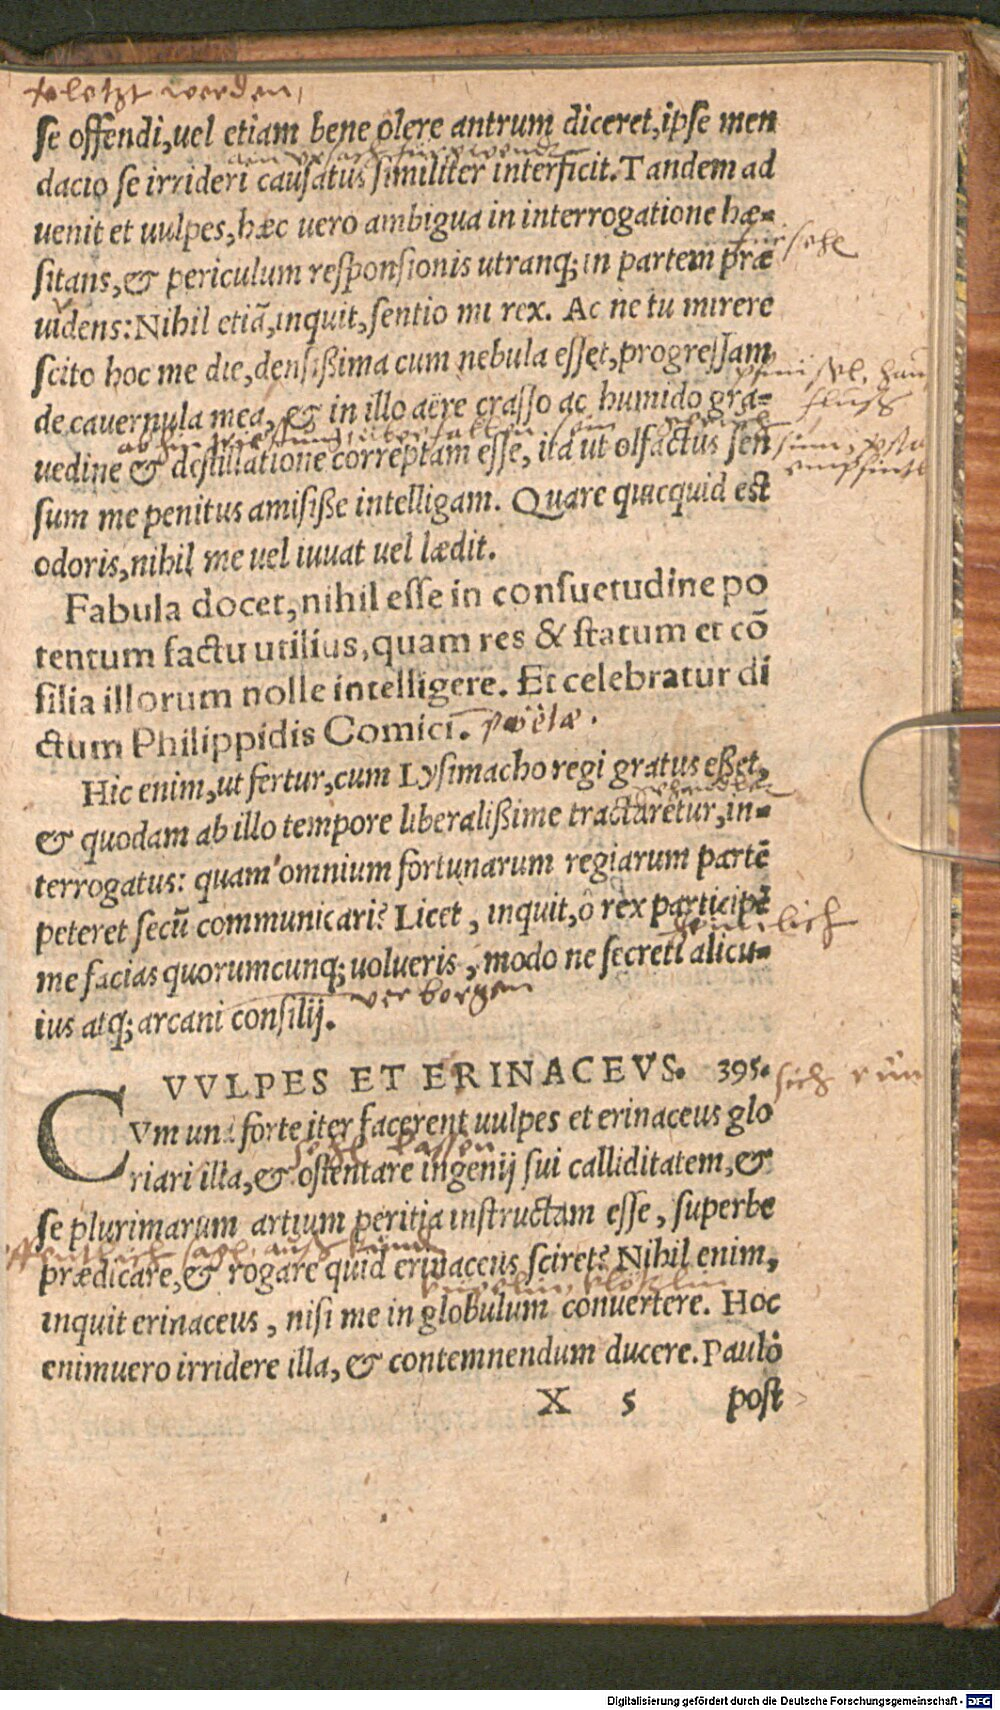 werden,
se offendi, uel etiam bene olere antrum diceret, ipse men
dacio se irrideri causatus similiter interficit. Tandem ad
uenit et uulpes, hæc uero ambigua in interrogatione hæ-
sitans, & periculum responsionis utranq; in partem præ
uidens: Nihil etiã, inquit, sentio mi rex. Ac ne tu mirere
scito hoc me die, densißima cum nebula esset, progressam
de cauernula mea, & in illo aëre crasso ac humido gra-
uedine & destillatione correptam esse, ita ut olfactus sen
sum me penitus amisiße intelligam. Quare quicquid est
odoris, nihil me uel iuuat uel lædit.
Fabula docet, nihil esse in consuetudine po
tentum factu utilius, quam res & statum et cõ
silia illorum nolle intelligere. Et celebratur di
ctum Philippidis Comici. poëtæ.
Hic enim, ut fertur, cum Lysimacho regi gratus eßet,
& quodam ab illo tempore liberalißime tractaretur, in-
terrogatus: quam omnium fortunarum regiarum partẽ
peteret secũ communicari? Licet, inquit, ô rex participẽ
heimlich
me facias quorumcunq; uolueris, modo ne secreti alicu-
verborgen
ius atq; arcani consilij.
VVLPES ET ERINACEVS. 395.
sich
CVm una forte iter facerent uulpes et erinaceus glo
lassen
riari illa, & ostentare ingenij sui calliditatem, &
se plurimarum artium peritia instructam esse, superbe
prædicare, & rogare quid erinaceus sciret? Nihil enim,
inquit erinaceus, nisi me in globulum conuertere. Hoc
enimuero irridere illa, & contemnendum ducere. Paulò
X 5 post
Digitalisierung gefördert durch die Deutsche Forschungsgemeinschaft - DFG